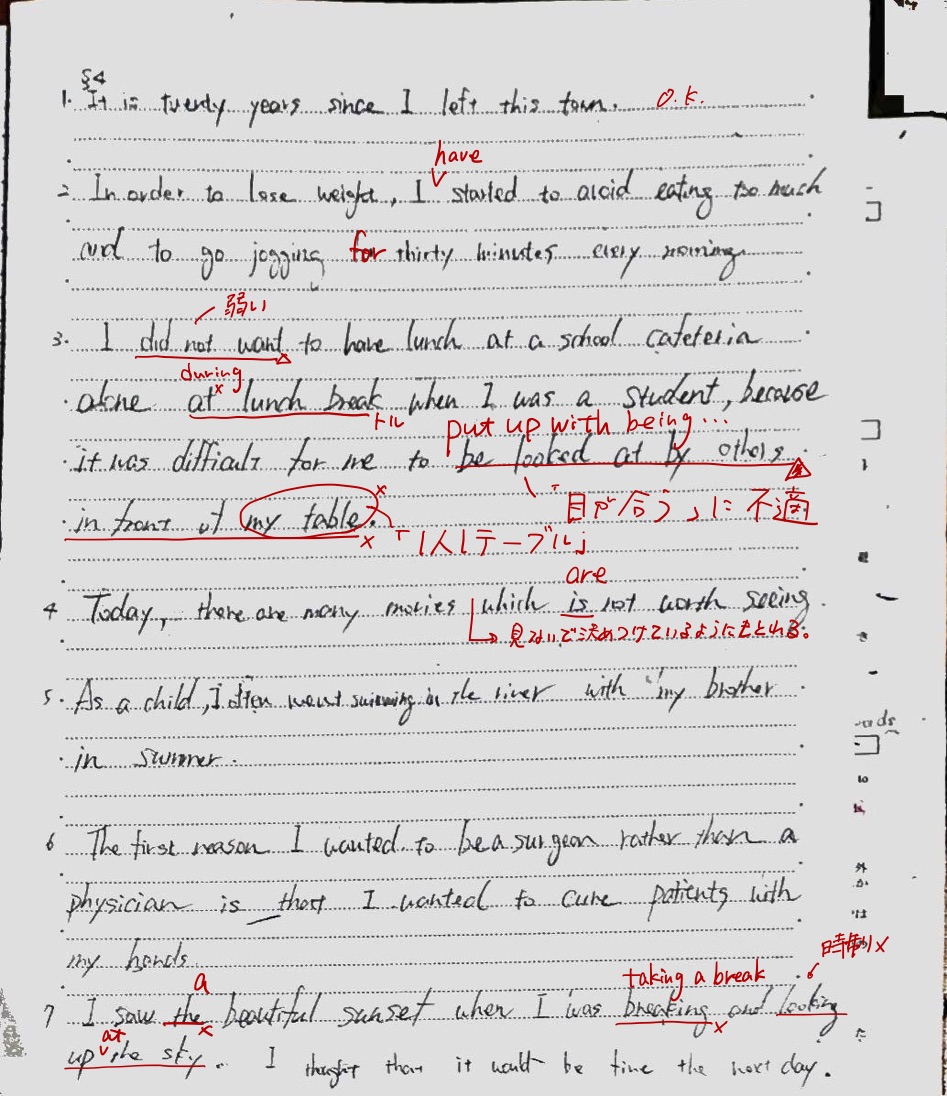 §4
1. It is twenty years since I left this town. O.K.
have
2 In order to lose weight, I started to avoid eating too much
and to go jogging for thirty minutes every morning
弱い
3. I did not want to have lunch at a school cafeteria
during
alone at lunch break when I was a student, because
トル
put up with being...
it was difficult for me to be looked at by others
「目が合う」に不適
in front of my table.
「1人1テーブル」
are
4 Today, there are many movies which is not worth seeing.
見ないで決めつけているようにもとれる。
5. As a child, I often went swimming in the river with my brother
in summer.
6 The first reason I wanted to be a surgeon rather than a
physician is that I wanted to cure patients with
my hands.
時制×
a taking a break
7 I saw the beautiful sunset when I was breaking and looking
at
up the sky. I thought that it would be fine the next day.